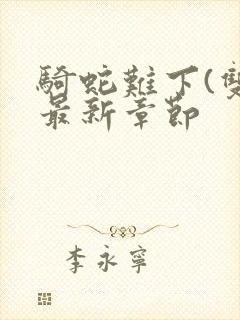 騎蛇難下(雙
最新章節
李永寧